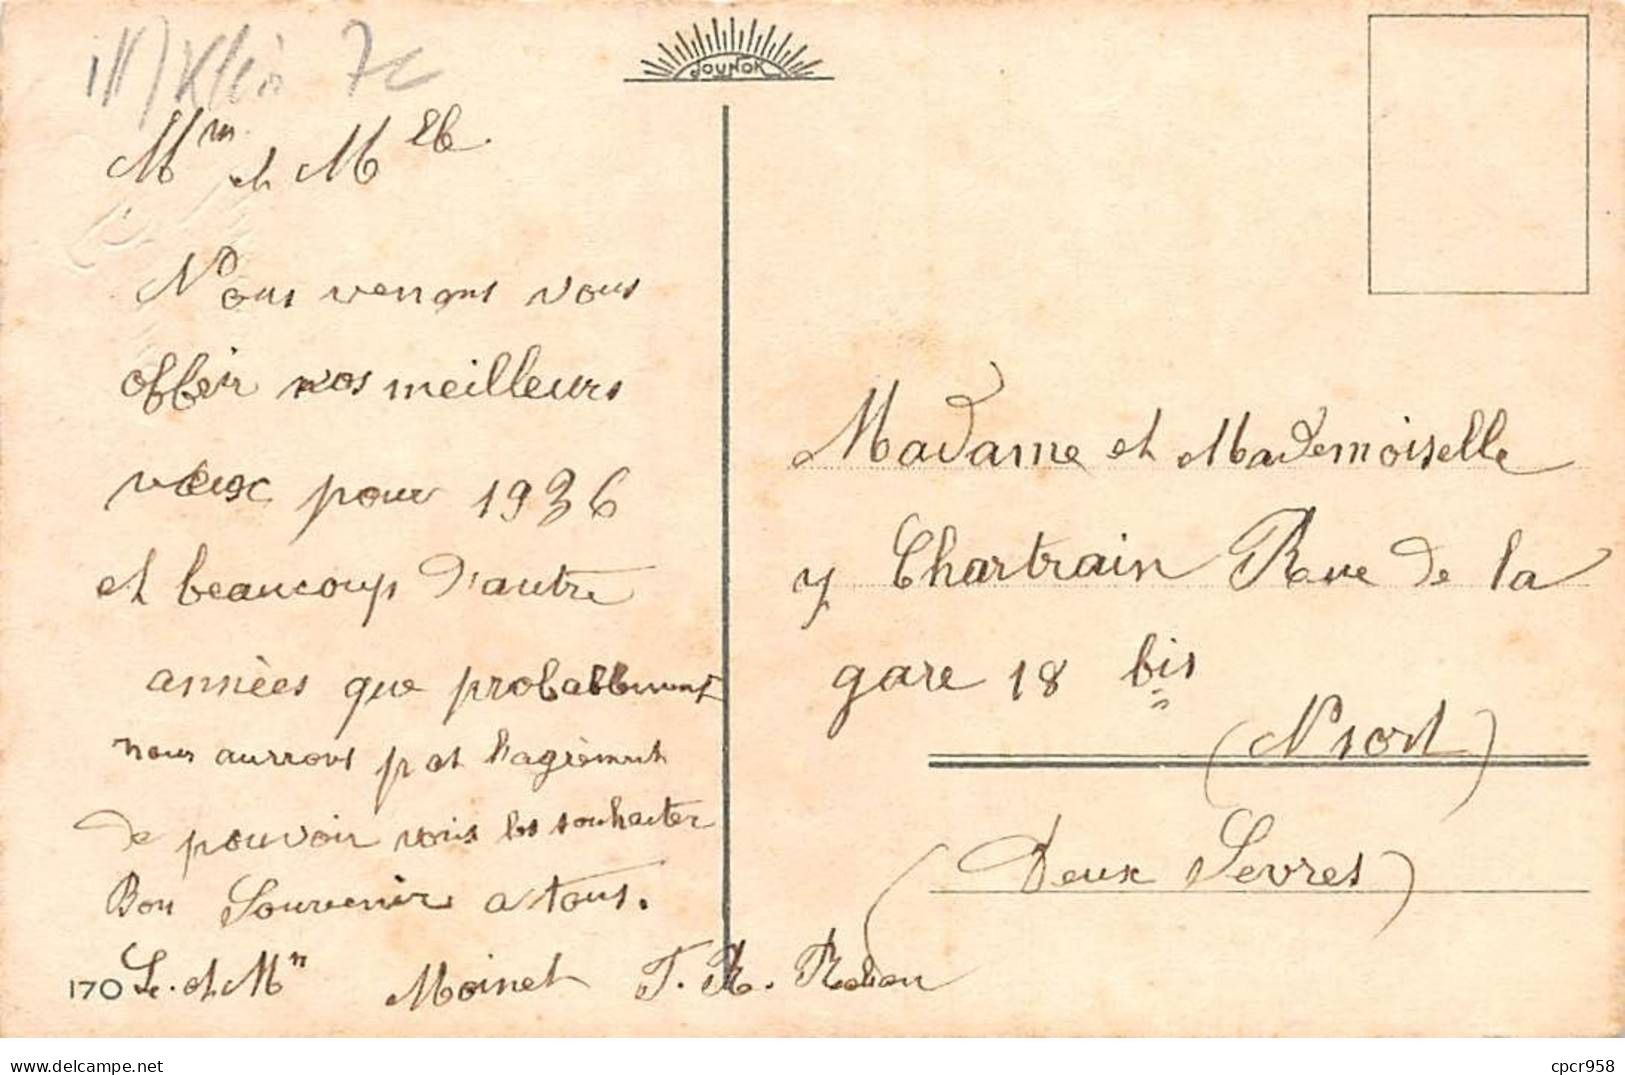 JOUNOK
7c
Mm et Mlle
Nous venons vous
offrir nos meilleurs
vœux pour 1936
et beaucoup d'autre
années que probablement
nous aurrons p et l'agrèment
de pouvoir vois les souhaiter
Bon Souvenir a tous.
170 L. et Mn Moinet T. R.
Madame et Mademoiselle
y Chartrain Rue de la
gare 18 bis
(Niort)
(Deux Sevres)
delcampe.net
cpcr958